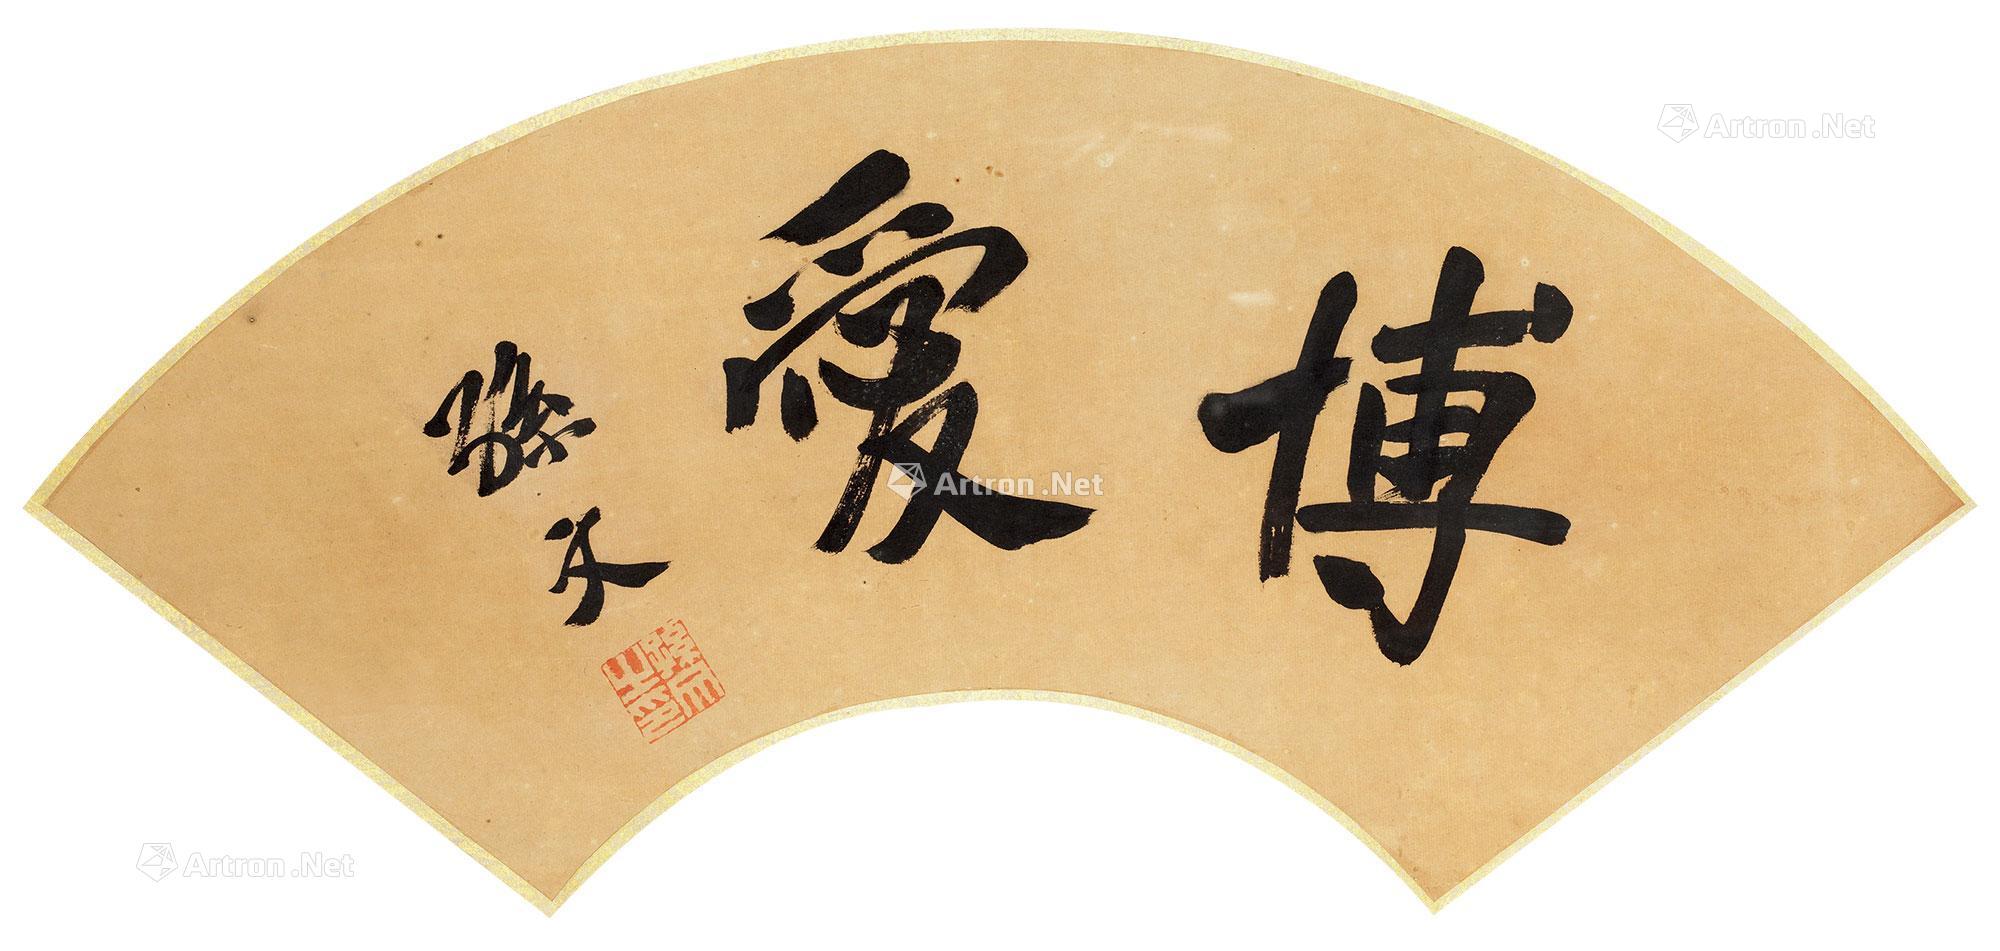 博愛
孫文
孫文之印
Artron.Net
Artron.Net
Artron.Net